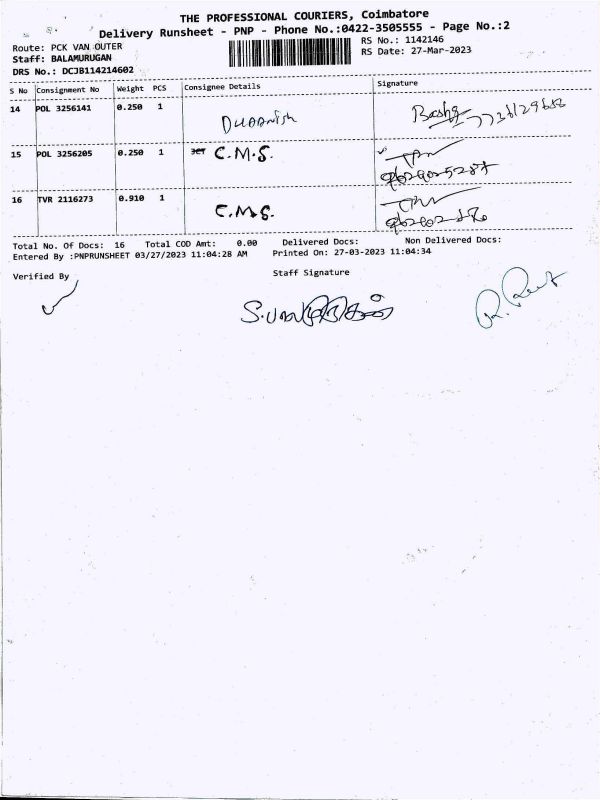 THE PROFESSIONAL COURIERS, Coimbatore
Delivery Runsheet - PNP - Phone No.:0422-3505555 - Page No.:2
Route: PCK VAN OUTER
RS No.: 1142146
Staff: BALAMURUGAN
RS Date: 27-Mar-2023
DRS No.: DCJB114214602
S No Consignment No Weight PCS Consignee Details Signature
14 POL 3256141 0.250 1
15 POL 3256205 0.250 1 C.M.S.
16 TVR 2116273 0.910 1 C.M.S.
Total No. Of Docs: 16 Total COD Amt: 0.00 Delivered Docs: Non Delivered Docs:
Entered By :PNPRUNSHEET 03/27/2023 11:04:28 AM Printed On: 27-03-2023 11:04:34
Verified By Staff Signature